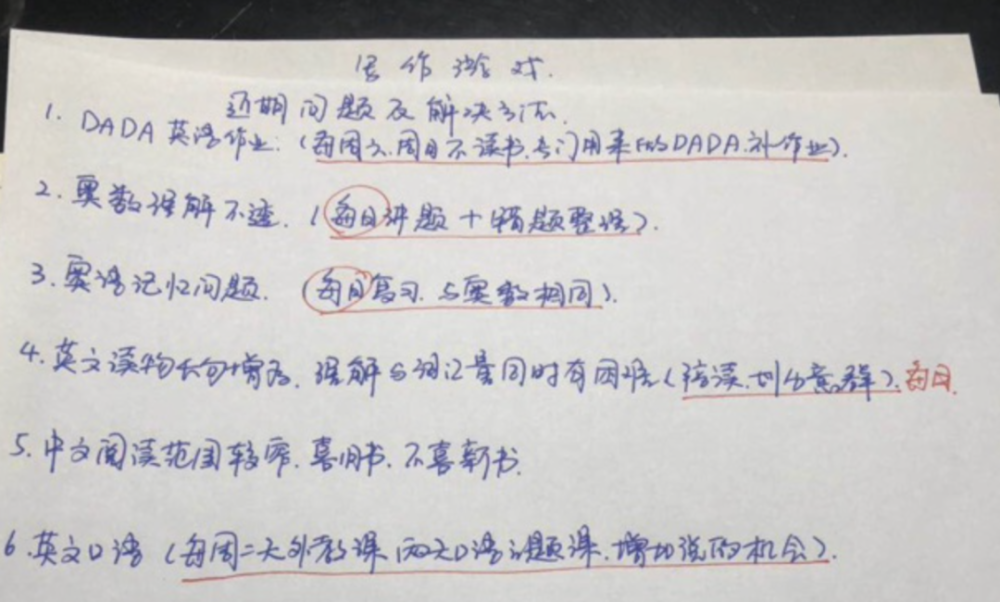 合作游戏.
近期问题及解决方法.
1. DADA英语作业:(每周六.周日不读书.专门用来做DADA.补作业).
2. 奥数理解不透.(每日讲题+错题整理).
3. 奥语记忆问题.(每日复习.与奥数相同).
4. 英文读物长句增多.理解与词汇量同时有困难(陪读.划分意群).每日.
5. 中文阅读范围较窄.喜旧书.不喜新书.
6. 英文口语(每周二天外教课.两天口语话题课.增加说的机会).